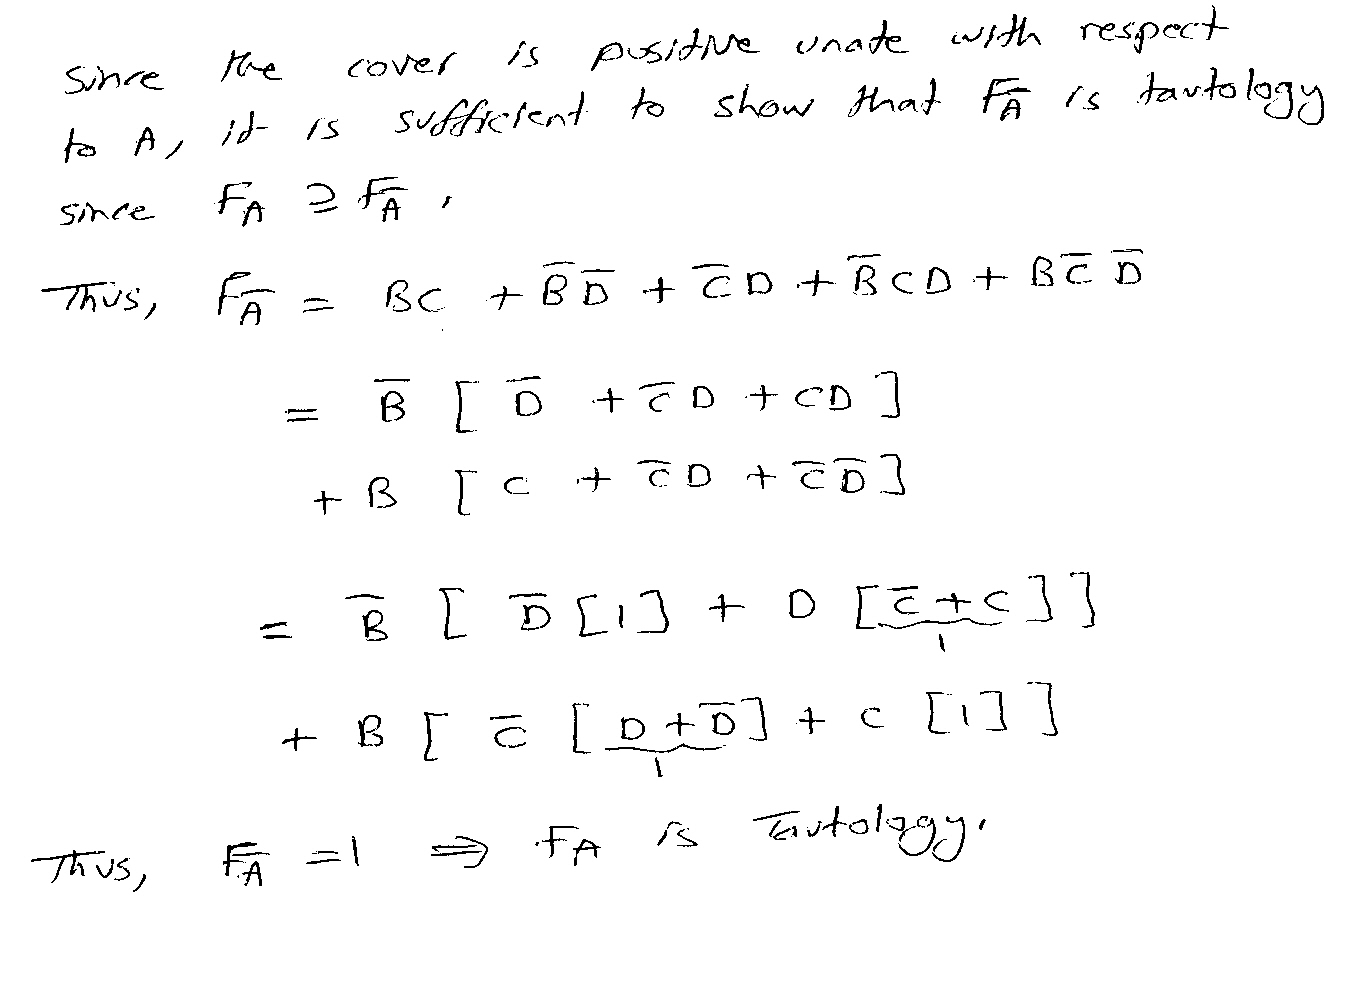 Since the cover is positive unate with respect
to A, it is sufficient to show that F_Ā is tautology
since F_A ⊇ F_Ā.
Thus, F_Ā = BC + B̄D̄ + C̄D + B̄CD + BC̄D̄
= B̄ [ D̄ + C̄D + CD ]
+ B [ C + C̄D + C̄D̄ ]
= B̄ [ D̄ [1] + D [C̄+C] ]
1
+ B [ C̄ [D+D̄] + C [1] ]
1
Thus, F_Ā = 1 ⇒ F_A is Tautology.